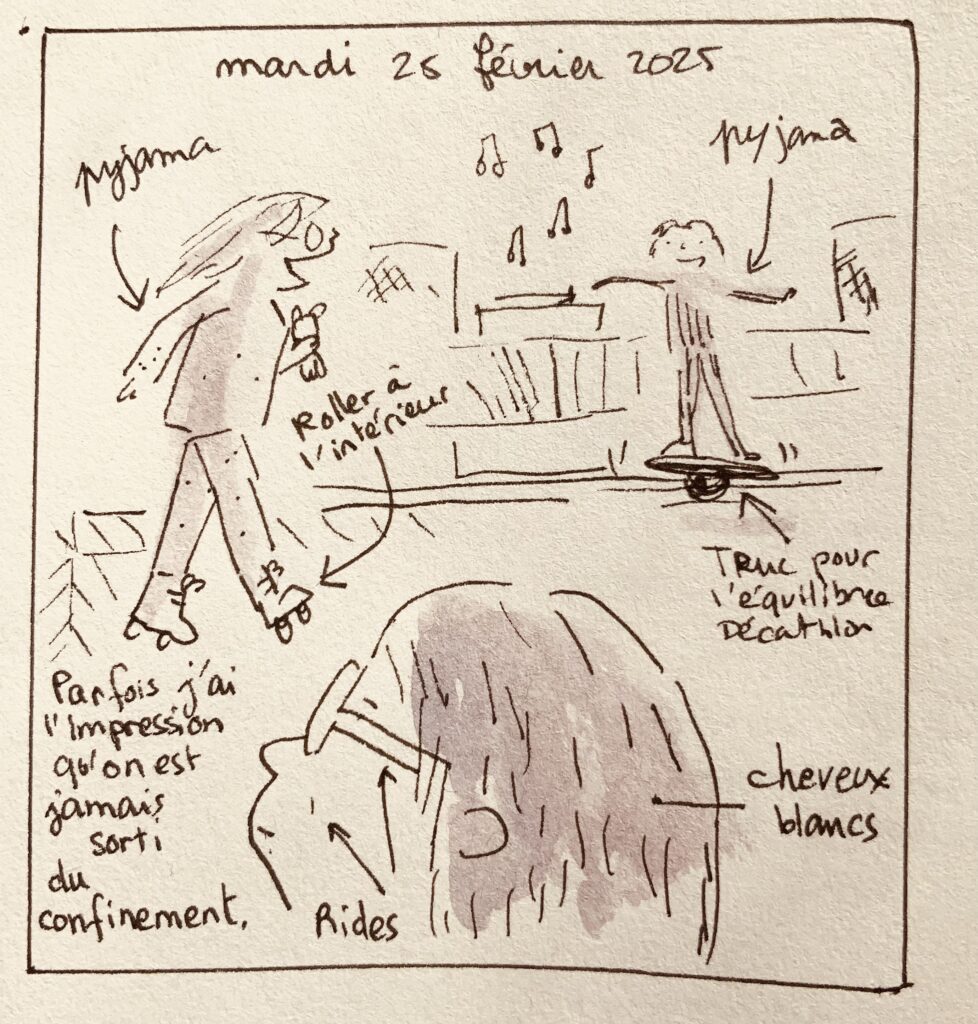 mardi 25 février 2025
pyjama
pyjama
Roller à
l'intérieur
Truc pour
l'équilibre
Décathlon
Parfois j'ai
l'impression
qu'on est
jamais
sorti
du
confinement.
Rides
cheveux
blancs